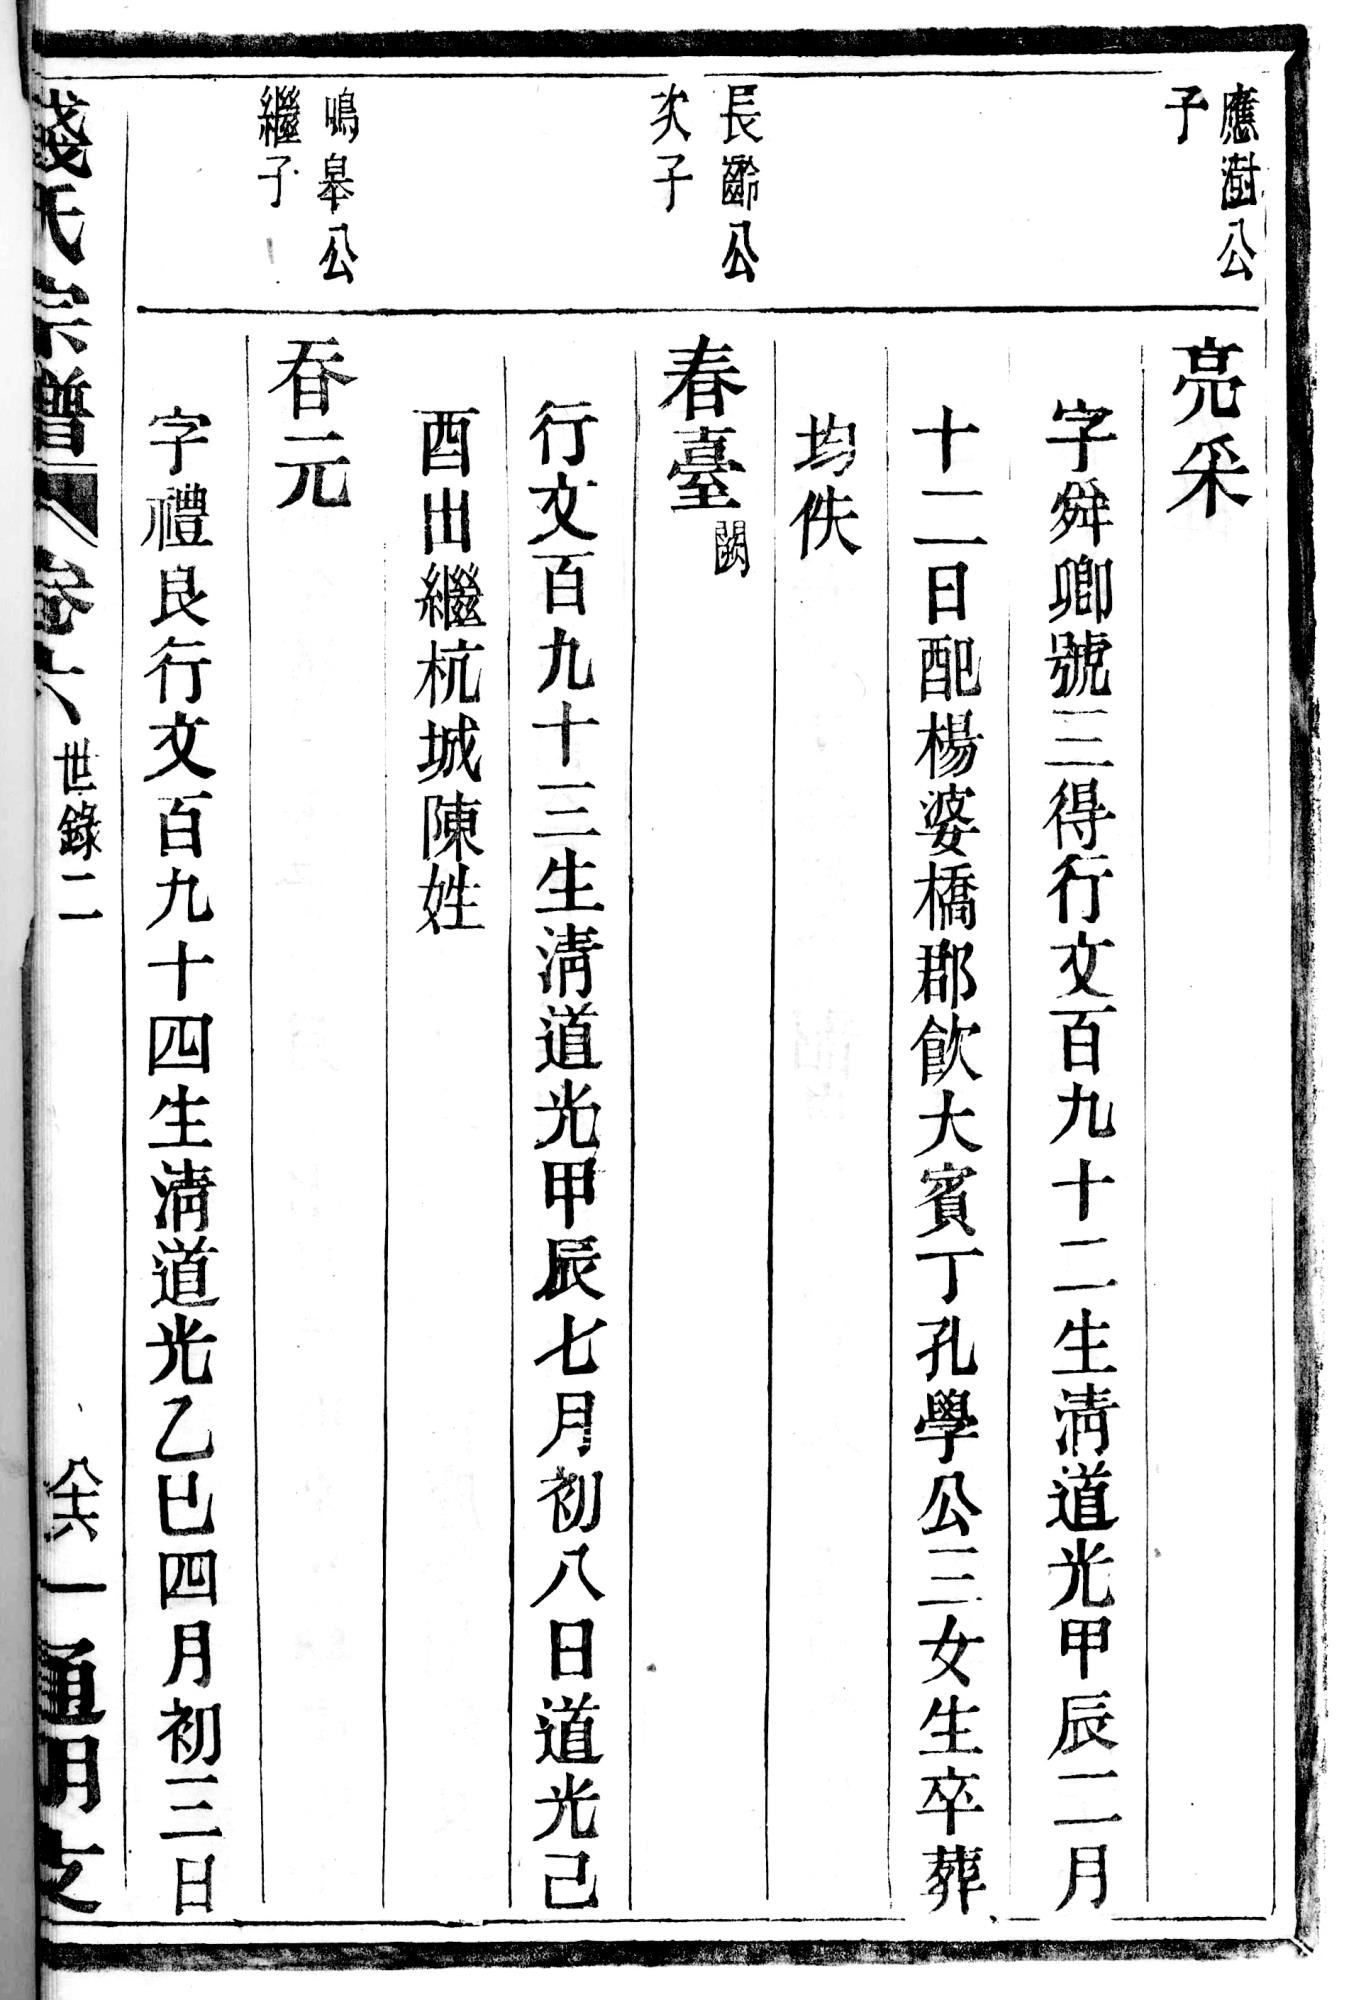 應澍公
子
亮采
字舜卿號三得行文百九十二生淸道光甲辰二月
十二日配楊婆橋郡飮大賓丁孔學公三女生卒葬
均佚
長齡公
次子
春臺闕
行文百九十三生淸道光甲辰七月初八日道光己
酉出繼杭城陳姓
鳴皋公
繼子
吞元
字禮良行文百九十四生淸道光乙巳四月初三日
錢氏宗譜 卷六 世錄二 八十六 一通明支